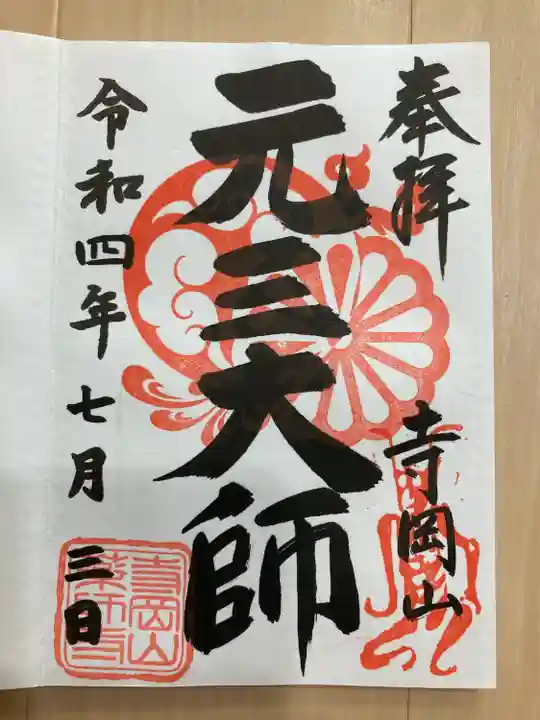 奉拝
寺岡山
元三大師
令和四年七月三日
寺岡山
薬師寺